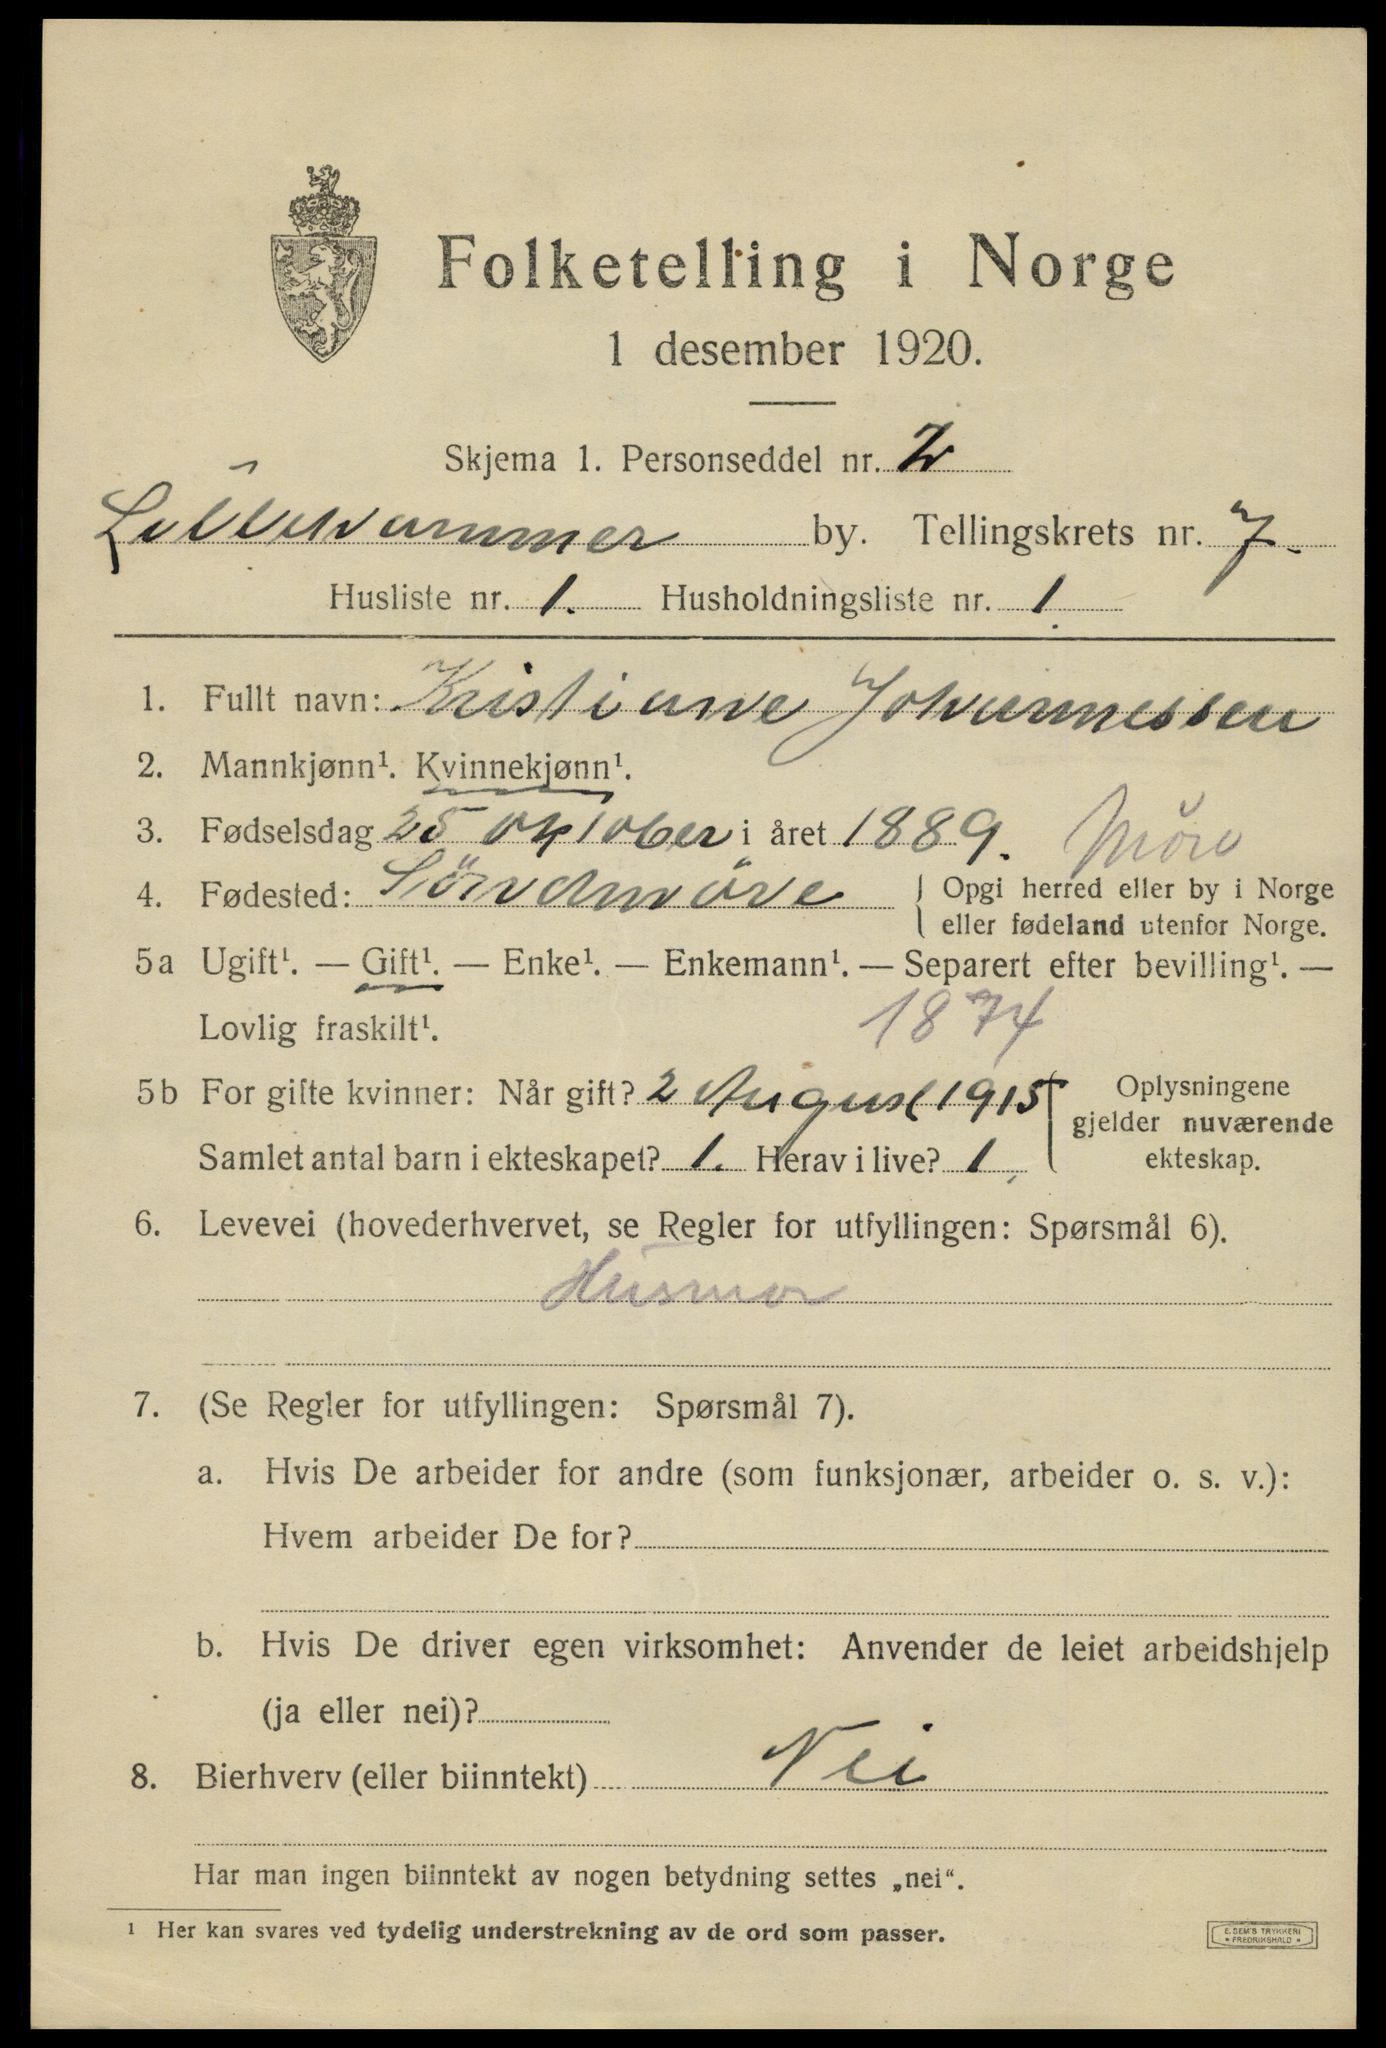 Folketelling i Norge
1 desember 1920.
Skjema 1. Personseddel nr. 2
Lillehammer by. Tellingskrets nr. 7.
Husliste nr. 1. Husholdningsliste nr. 1
1. Fullt navn: Kristiane Johannessen
2. Mannkjønn¹. Kvinnekjønn¹.
3. Fødselsdag 25 oktober i året 1889. Møre
4. Fødested: Söndmöre { Opgi herred eller by i Norge
eller fødeland utenfor Norge.
5a Ugift¹. — Gift¹. — Enke¹. — Enkemann¹. — Separert efter bevilling¹. —
Lovlig fraskilt¹. 1874
5b For gifte kvinner: Når gift? 2 August 1915
Samlet antal barn i ekteskapet? 1. Herav i live? 1
Oplysningene
gjelder nuværende
ekteskap.
6. Levevei (hovederhvervet, se Regler for utfyllingen: Spørsmål 6).
Husmor
7. (Se Regler for utfyllingen: Spørsmål 7).
a. Hvis De arbeider for andre (som funksjonær, arbeider o. s. v.):
Hvem arbeider De for?
b. Hvis De driver egen virksomhet: Anvender de leiet arbeidshjelp
(ja eller nei)?
8. Bierhverv (eller biinntekt) Nei
Har man ingen biinntekt av nogen betydning settes „nei“.
¹ Her kan svares ved tydelig understrekning av de ord som passer.
E. SEM'S TRYKKERI
* FREDRIKSHALD *